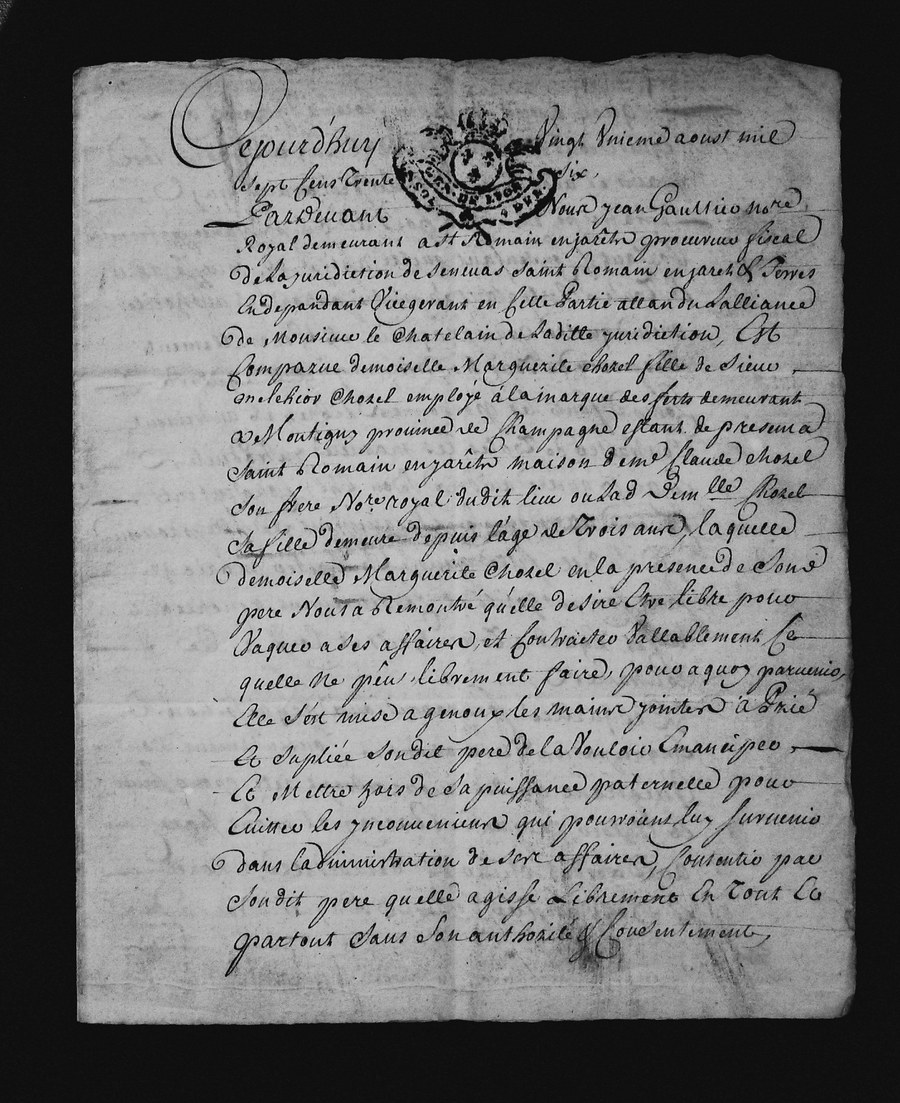 Cejourd'huy Vingt Unieme aoust mil
Sept Cens Trente Six,
GEN. DE LYON
Pardevant Nous jean Gaultier no.re
Royal demeurant a St Romain en jarêtz procureur fiscal
de La juridiction de Senevas Saint Romain en jarets & Terres
En dependant Vicegerant en Cette Partie attandu Lalliance
de Monsieur le Chatelain de Laditte juridiction, Est
Comparue demoiselle Marguerite chozel fille de Sieur
melchior Chozel employé à la marque des ferts demeurant
a Montigny province de Champagne estant de present a
Saint Romain en jarêtz maison de me Claude chozel
Son frere No.re royal dudit lieu ou Lad Demlle Chozel
Sa fille demeure depuis l'age de Trois ans, laquelle
demoiselle Marguerite Chozel en la presence de Sond
pere Nous a Remontré qu'elle desire Etre libre pour
Vaquer a Ses affaires, et Contracter Vallablement Ce
quelle ne peu librement faire, pour a quoy parvenir,
Elle S'est mise a genoux les mains jointes à Prié
Et Supliée Sondit pere de la Vouloir Emanciper
Et Mettre hors de Sa puissance paternelle pour
Eviter les ynconveniens qui pourroient luy Survenir
dans ladministration de Ses affaires, Consentir par
Sondit pere quelle agisse Librement En Tout Et
partout Sans Son authorité & Consentement,